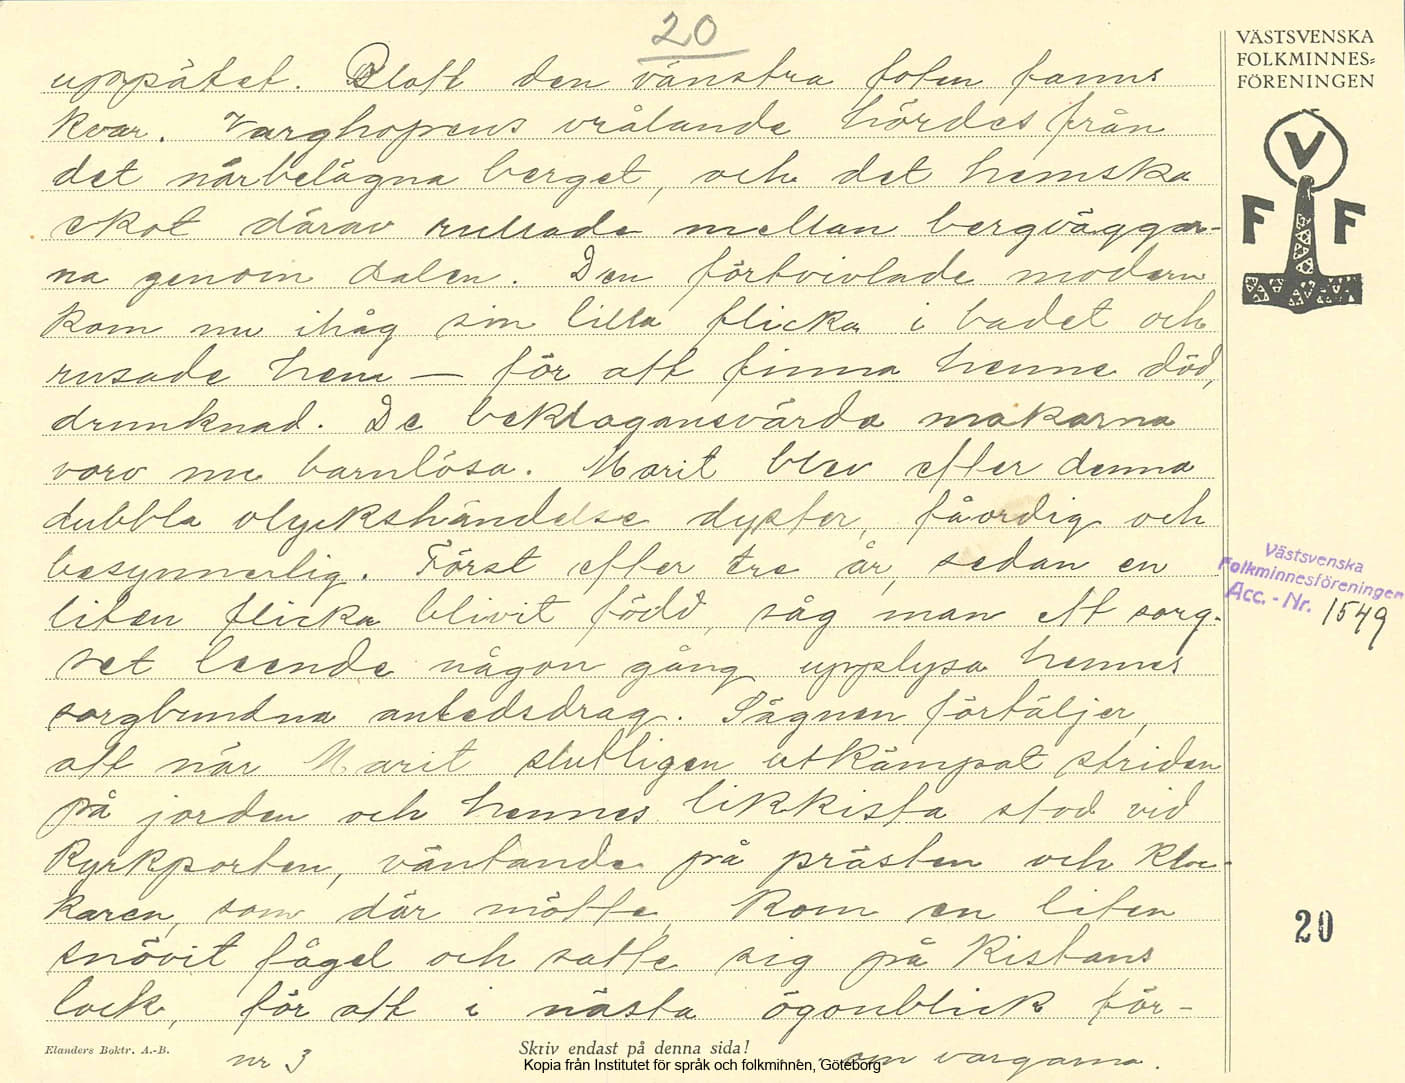 20
uppätet. Blott den vänstra foten fanns
kvar. Varghopens vrålande hördes från
det närbelägna berget, och det hemska
ekot därav rullade mellan bergväggar-
na genom dalen. Den förtvivlade modern
kom nu ihåg sin lilla flicka i badet och
rusade hem — för att finna henne död,
drunknad. De beklagansvärda makarna
voro nu barnlösa. Marit blev efter denna
dubbla olyckshändelse dyster, fåordig och
besynnerlig. Först efter tre år, sedan en
liten flicka blivit född, såg man ett sorg-
set leende någon gång upplysa hennes
sorgbundna anletsdrag. Sägnen förtäljer,
att när Marit slutligen utkämpat striden
på jorden och hennes likkista stod vid
kyrkporten, väntande på prästen och kloc-
karen, som där mötte, kom en liten
snövit fågel och satte sig på kistans
lock, för att i nästa ögonblick för-
Elanders Boktr. A.-B.
nr 3
Skriv endast på denna sida!
om vargarna.
Kopia från Institutet för språk och folkminnen, Göteborg
VÄSTSVENSKA
FOLKMINNES=
FÖRENINGEN
V
F F
Västsvenska
Folkminnesföreningen
Acc. - Nr. 1549
20